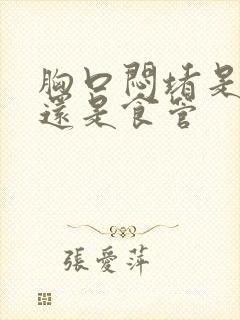 胸口悶堵是
還是食管
張愛萍